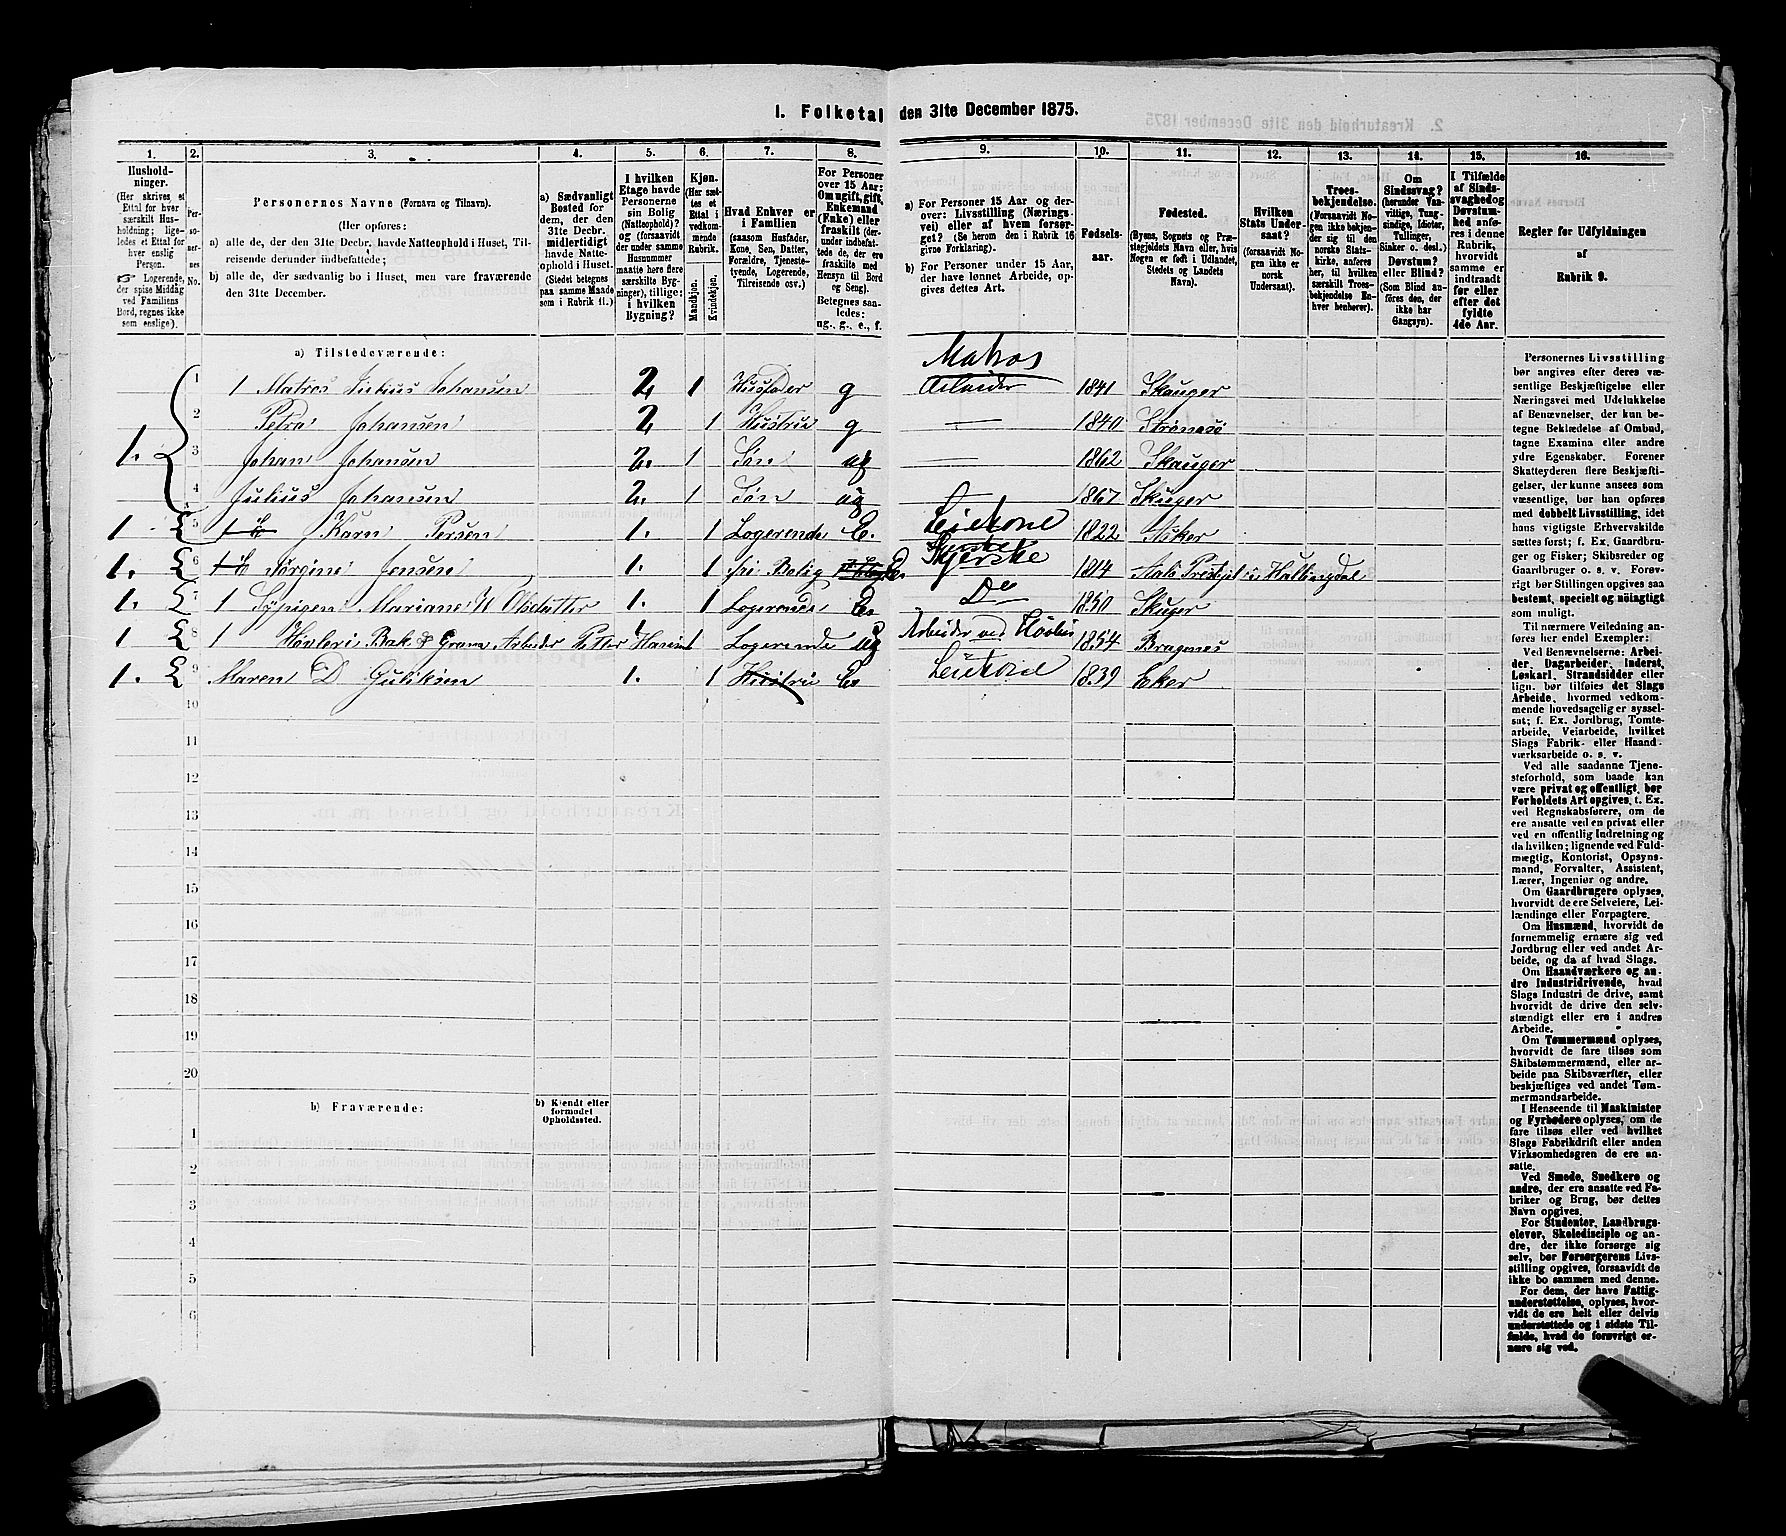 1. Folketal den 31te December 1875.
1. 2. 3. 4. 5. 6. 7. 8. 9. 10. 11. 12. 13. 14. 15. 16.
Husholdninger. (Her skrives et Ettal for hver særskilt Husholdning; ligeledes et Ettal for hver enslig Person. ☞ Logerende, der spise Middag ved Familiens Bord, regnes ikke som enslige).
Personernes No.
Personernes Navne (Fornavn og Tilnavn).
(Her opføres:
a) alle de, der den 31te Decbr. havde Natteophold i Huset, Tilreisende derunder indbefattede;
b) alle de, der sædvanlig bo i Huset, men vare fraværende den 31te December.
a) Sædvanligt Bosted for dem, der den 31te Decbr. midlertidigt havde Natteophold i Huset. (Stedet betegnes paa samme Maade som i Rubrik 11.)
I hvilken Etage havde Personerne sin Bolig (Natteophold)? og (forsaavidt der under samme Husnummer maatte høre flere særskilte Bygninger), tillige: i hvilken Bygning?
Kjøn. (Her sættes et Ettal i vedkommende Rubrik.
Mandkjøn. Kvindekjøn.
Hvad Enhver er i Familien (saasom Husfader, Kone, Søn, Datter, Forældre, Tjenestetyende, Logerende, Tilreisende osv.)
For Personer over 15 Aar: Om ugift, gift, Enkemand (Enke) eller fraskilt (derunder indbefattede de, der ere fraskilte med Hensyn til Bord og Seng). Betegnes saaledes: ug., g., e., f.
a) For Personer 15 Aar og derover: Livsstilling (Næringsvei) eller af hvem forsørget? (Se herom den i Rubrik 16 givne Forklaring).
b) For Personer under 15 Aar, der have lønnet Arbeide, opgives dettes Art.
Fødselsaar.
Fødested. (Byens, Sognets og Præstegjeldets Navn eller, hvis Nogen er født i Udlandet, Stedets og Landets Navn).
Hvilken Stats Undersaat? (forsaavidt Nogen ikke er norsk Undersaat).
Troesbekjendelse. (Forsaavidt Nogen ikke bekjender sig til den norske Statskirke, anføres her, til hvilken særskilt Troesbekjendelse Enhver henhører).
Om Sindssvag? (herunder Vaavittige, Tungsindige, Idioter, Tullinger, Sinker o. desl.). Døvstum? eller Blind? (Som Blind anføres den, der ikke har Gangsyn).
I Tilfælde af Sindssvaghed og Døvstumhed anføres i denne Rubrik, hvorvidt samme er indtraadt før eller efter det fyldte 4de Aar.
Regler for Udfyldningen af Rubrik 9.
a) Tilstedeværende:
Matros
1 1 Matros Julius Johansen 2 1 Husfader g Arbeider 1841 Skauger
2 Petra Johansen 2 1 Hustru g — 1840 Strømsø
1. 3 Johan Johansen 2. 1 Søn ug — 1862 Skauger
4 Julius Johansen 2. 1 Søn ug — 1867 Skuger
1. 5 Karn Persen 1. 1 Logerende E. Leiekone 1822 Aiker
1. 6 Jørgine Jensen 1. 1 E. 1814 Aals Prestejel i Hallingdal
1. 7 1 Sypigen Mariane H Olsdatter 1. 1 Logerende E. Do 1850 Skuger
1 8 1 Høvleri Bak & Gram Arbeider Petter Hansen 1 1 Logerende ug Arbeider ved Høvleri 1854 Bragnes
1. 9 Maren D Guliksen 1. 1 Hustru E. Leiekone 1839 Eker
10
11
12
13
14
15
16
17
18
19
20
b) Fraværende: b) Kjendt eller formodet Opholdssted.
1
2
3
4
5
6
Personernes Livsstilling
bør angives efter deres væ-
sentlige Beskjæftigelse eller
Næringsvei med Udelukkelse
af Benævnelser, der kun be-
tegne Beklædelse af Ombud,
tagne Examina eller andre
ydre Egenskaber. Forener
Skatteyderen flere Beskjæfti-
gelser, der kunne ansees som
væsentlige, bør han opføres
med dobbelt Livsstilling, idet
hans vigtigste Erhvervskilde
sættes først; f. Ex. Gaardbru-
ger og Fisker; Skibsreder og
Gaardbruger o. s. v. Forøv-
rigt bør Stillingen opgives saa
bestemt, specielt og nøiagtigt
som muligt.
Til nærmere Veiledning an-
føres her endel Exempler:
Ved Benævnelserne: Arbei-
der, Dagarbeider, Inderst,
Løskarl, Strandsidder eller
lign. bør tilføies det Slags
Arbeide, hvormed vedkom-
mende hovedsagelig er syssel-
sat; f. Ex. Jordbrug, Tomte-
arbeide, Veiarbeide, hvilket
Slags Fabrik- eller Haand-
værksarbeide o. s. v.
Ved alle saadanne Tjene-
steforhold, som baade kan
være privat og offentligt, bør
Forholdets Art opgives, t. Ex.
ved Regnskabsførere, om de
ere ansatte ved en privat eller
ved en offentlig Indretning og
da hvilken; lignende ved Fuld-
mægtig, Kontorist, Opsyns-
mand, Forvalter, Assistent,
Lærer, Ingeniør og andre.
Om Gaardbrugere oplyses,
hvorvidt de ere Selveiere, Lei-
lændinge eller Forpagtere.
Om Husmænd, hvorvidt de
fornemmelig ernære sig ved
Jordbrug eller ved andet Ar-
beide, og da af hvad Slags.
Om Haandværkere og an-
dre Industridrivende, hvad
Slags Industri de drive, samt
hvorvidt de drive den selv-
stændigt eller ere i andres
Arbeide.
Om Tømmermænd oplyses,
hvorvidt de fare tilsøs som
Skibstømmermænd, eller ar-
beide paa Skibsværfter, eller
beskjæftiges ved andet Tøm-
mermandsarbeide.
I Henseende til Maskinister
og Fyrbødere oplyses, om de
fare tilsøs eller ved hvilket
Slags Fabrikdrift eller anden
Virksomhedsgren de ere an-
satte.
Ved Smede, Snedkere og
andre, der ere ansatte ved Fa-
briker og Brug, bør dettes
Navn opgives.
For Studenter, Landbrugs-
elever, Skoledisciple og an-
dre, der ikke forsørge sig
selv, bør Forsørgerens Livs-
stilling opgives, forsaavidt de
ikke bo sammen med denne.
For dem, der have Fattig-
understøttelse, oplyses, hvor-
vidt de ere helt eller delvis
understøttede og i sidste Til-
fælde, hvad de forøvrigt er-
nære sig ved.